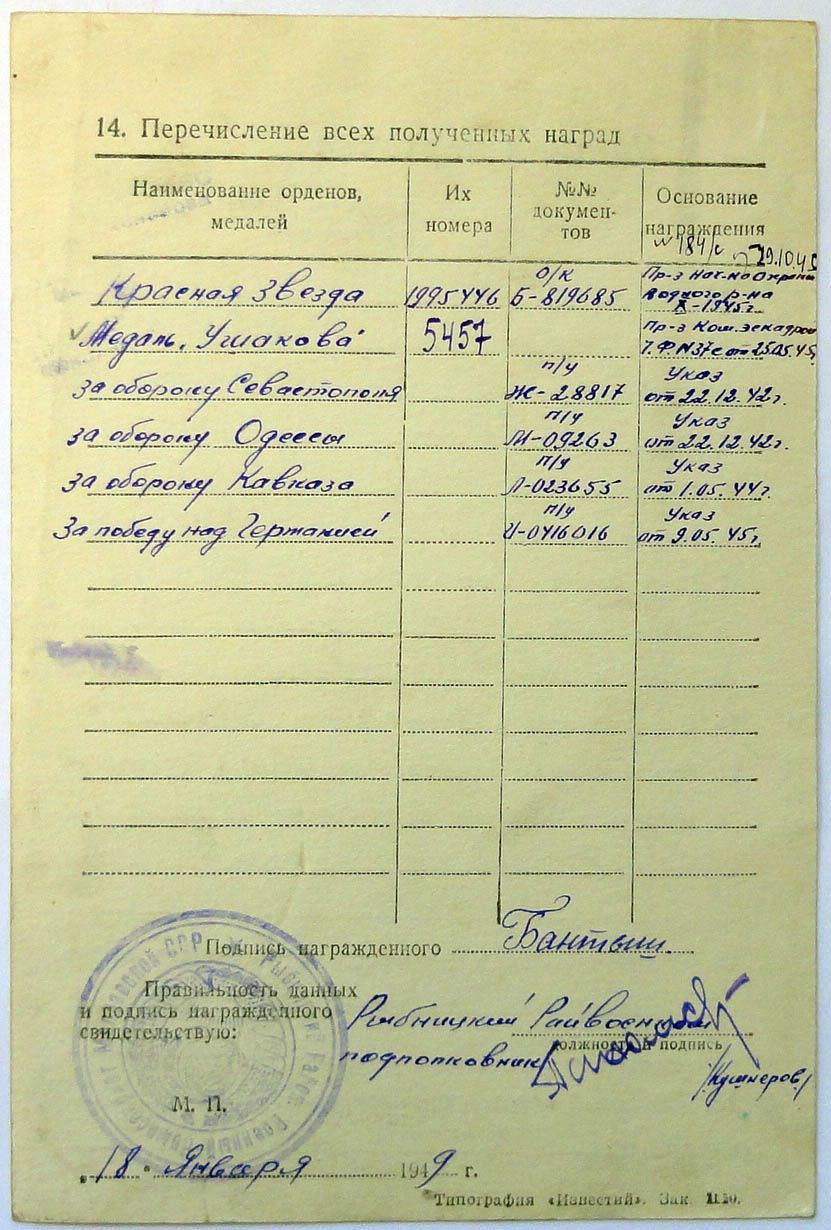 14. Перечисление всех полученных наград
Наименование орденов, медалей
Их номера
№№ докумен-тов
Основание награждения
№ 184/с 29.10.45
Красная Звезда 1995446 о/к Б-819685 Пр-з Нач-ка Охраны Водного р-на X-1945г.
Медаль „Ушакова" 5457 Пр-з Ком. эскадрой Ч.Ф. N37с от 25.05.45
за оборону Севастополя п/у Ж-28817 Указ от 22.12.42г.
за оборону Одессы п/у М-09263 Указ от 22.12.42г.
за оборону Кавказа п/у Л-023655 Указ от 1.05.44г.
За победу над Германией п/у И-0416016 Указ от 9.05.45г.
Подпись награжденного Бантыш
Правильность данных
и подпись награжденного
свидетельствую:
Рыбницкий Райвоенком
должность и подпись
подполковник /Кушнеров/
М. П.
„18" Января 1949 г.
Типография «Известий». Зак.